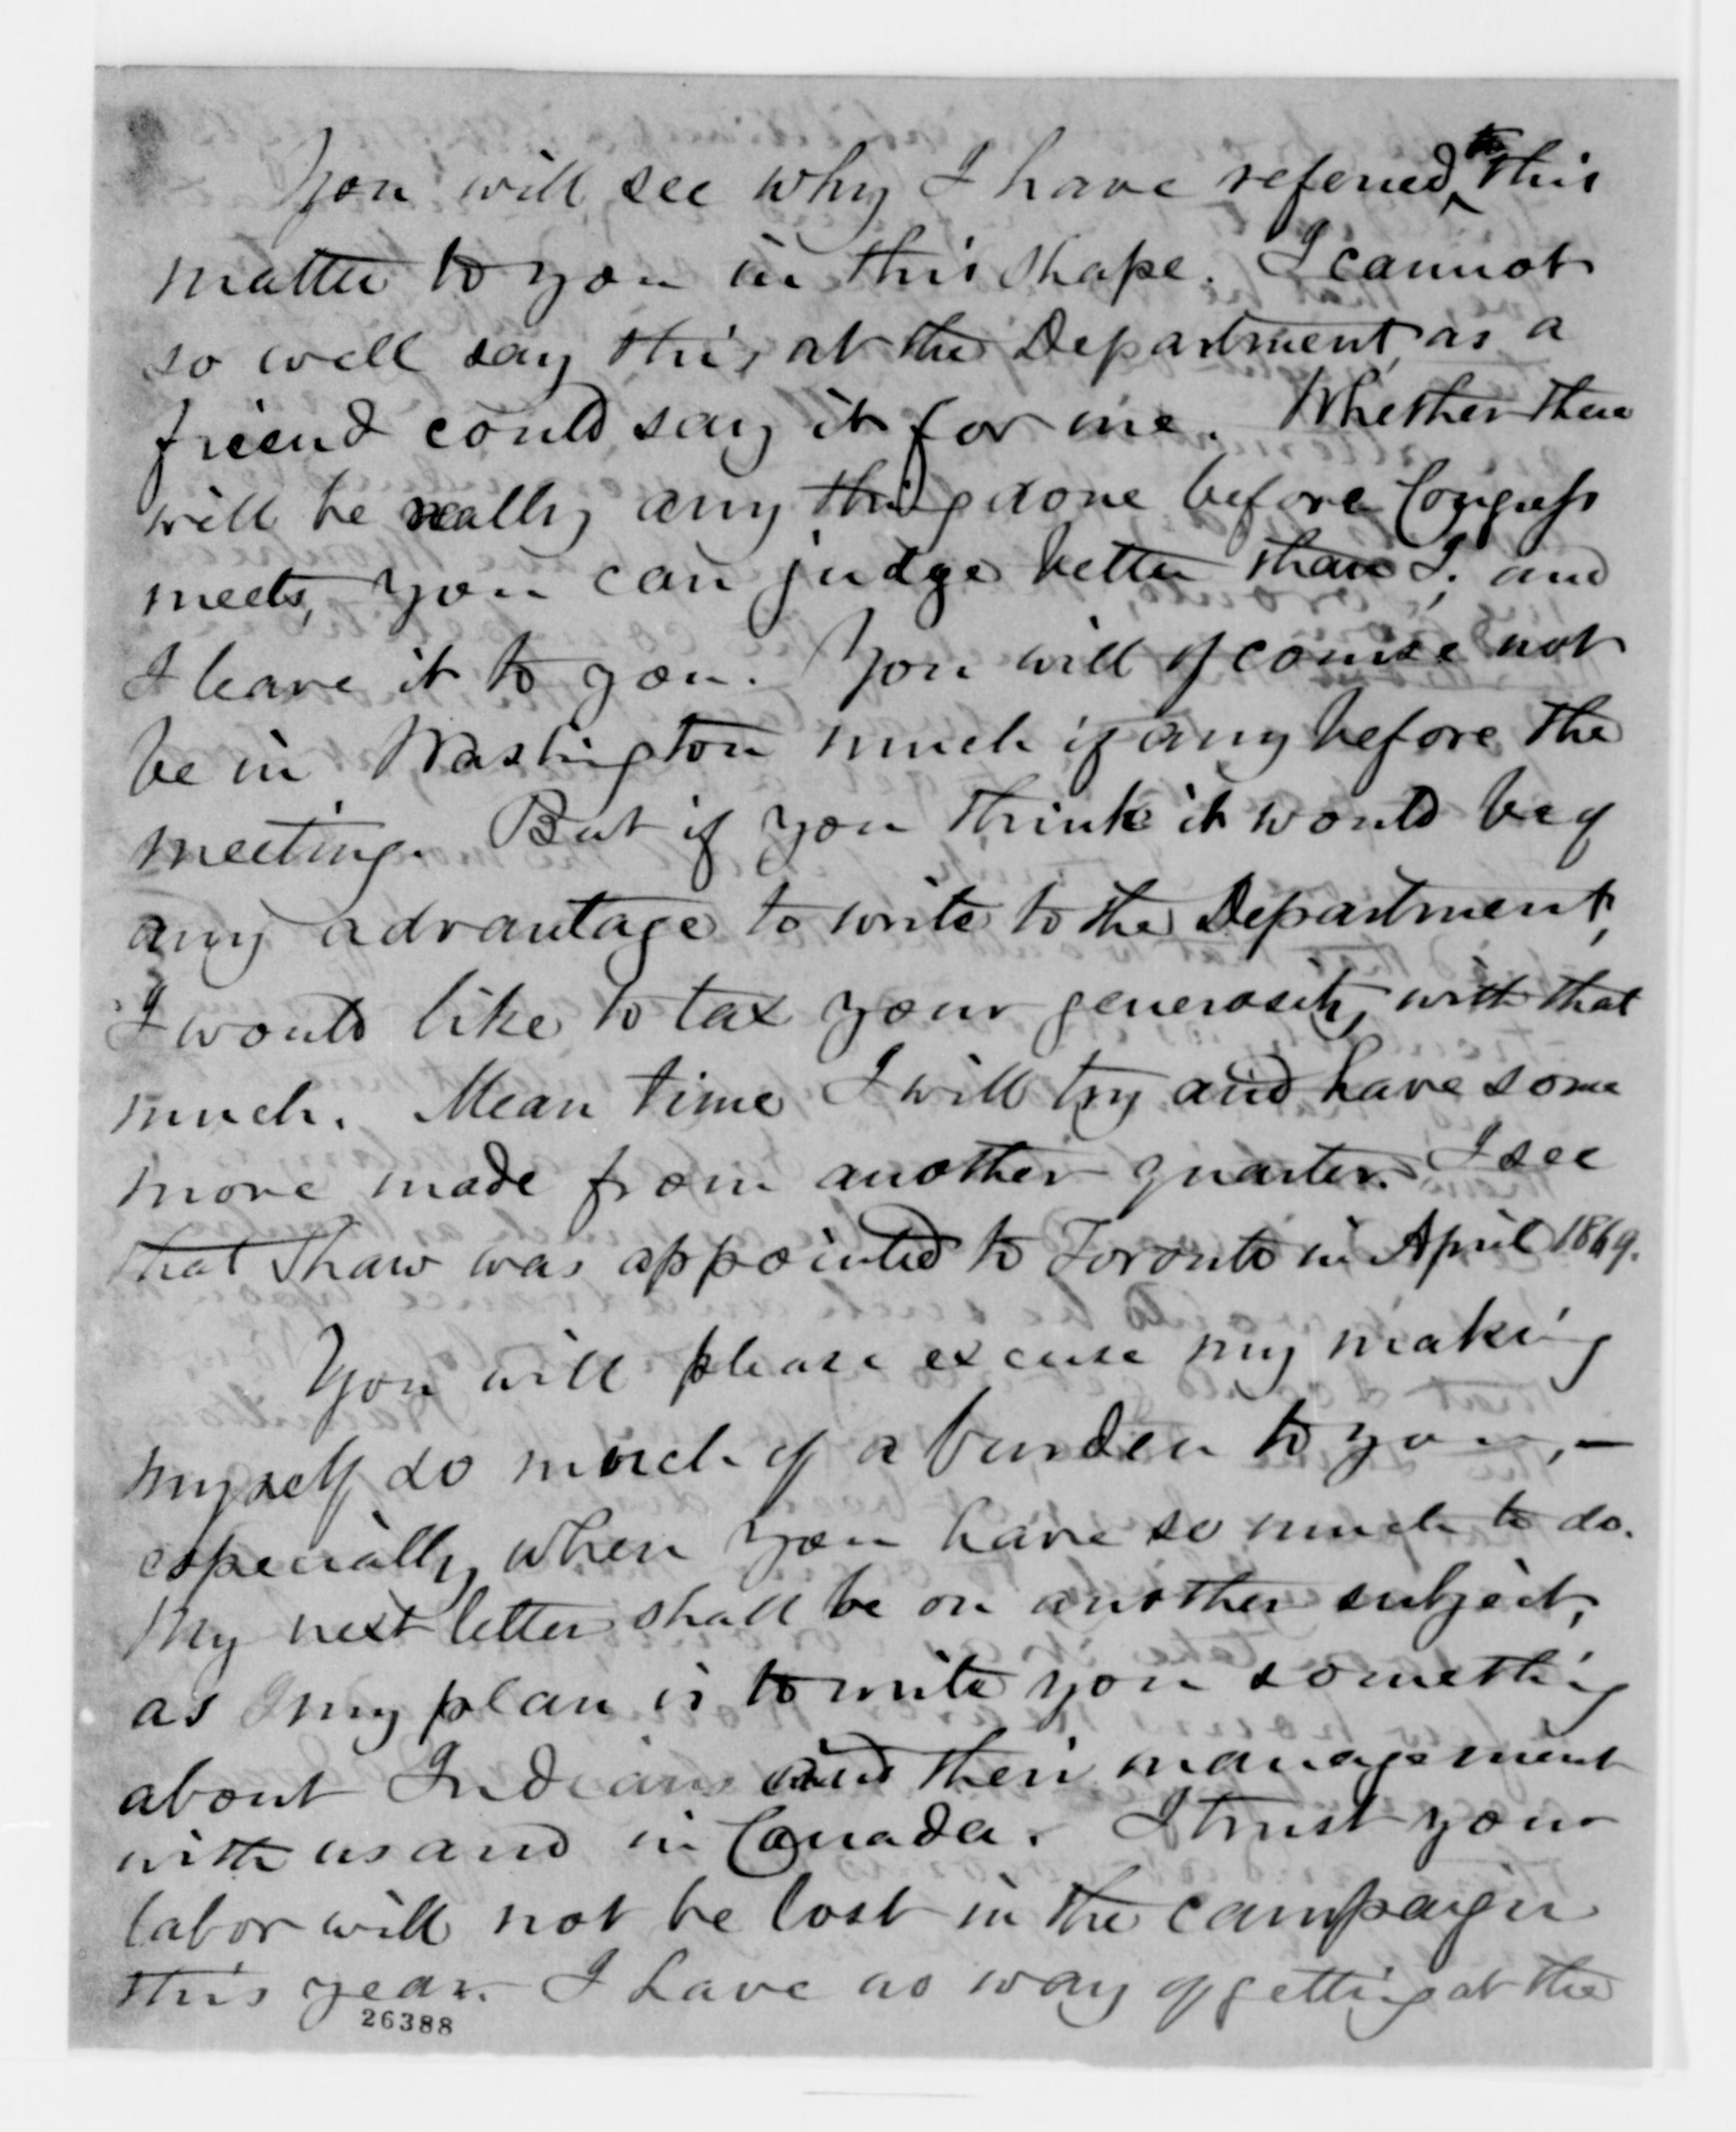 You will see why I have referred to this
matter to you in this shape. I cannot
so well say this at the Department, as a
friend could say it for me. Whether there
will be really any thing done before Congress
meets, you can judge better than I; and
I leave it to you. You will of course not
be in Washington much if any before the
meeting. But if you think it would be of
any advantage to write to the Department,
I would like to tax your generosity with that
much. Mean time I will try and have some
move made from another quarter. I see
that Thaw was appointed to Toronto in April 1869.
You will please excuse my making
myself so much of a burden to you, —
especially when you have so much to do.
My next letter shall be on another subject,
as my plan is to write you something
about Indians and their management
with us and in Canada. I trust your
labor will not be lost in the campaign
this year. I have no way of getting at the
26388